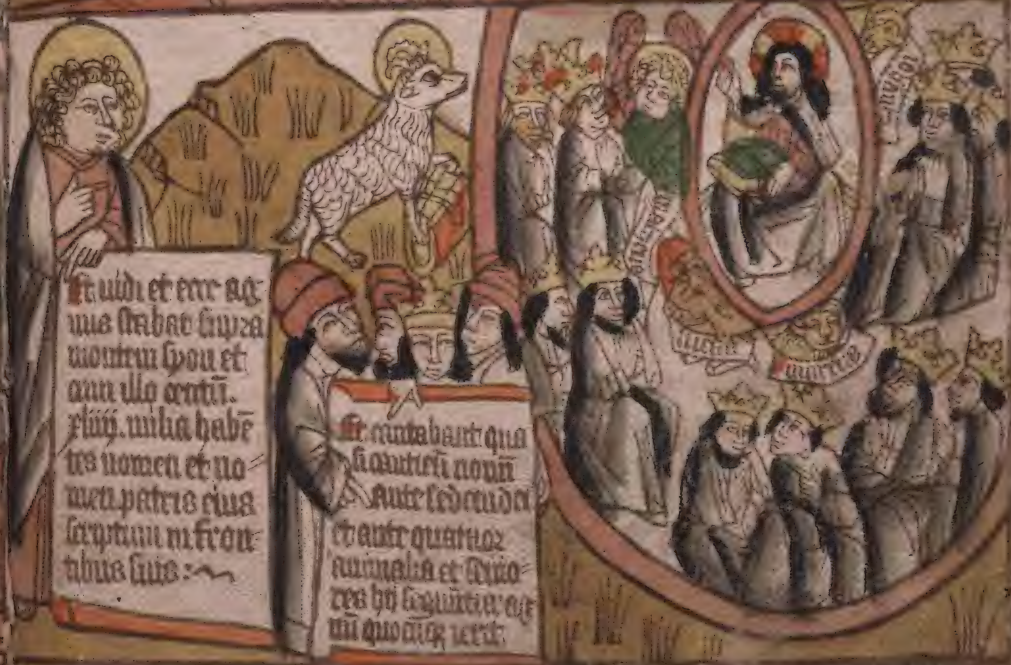 Et uidi et ecce ag
nus stabat supra
montem syon et
cum illo centū.
xliiij. milia habē
tes nomen et no
men patris eius
scriptum in fron
tibus suis:
Et cantabant qua
si canticū nouū
ante sedem dei
et ante quatuor
animalia et senio
res hij sequūtur ag
nū quocūq ierit.